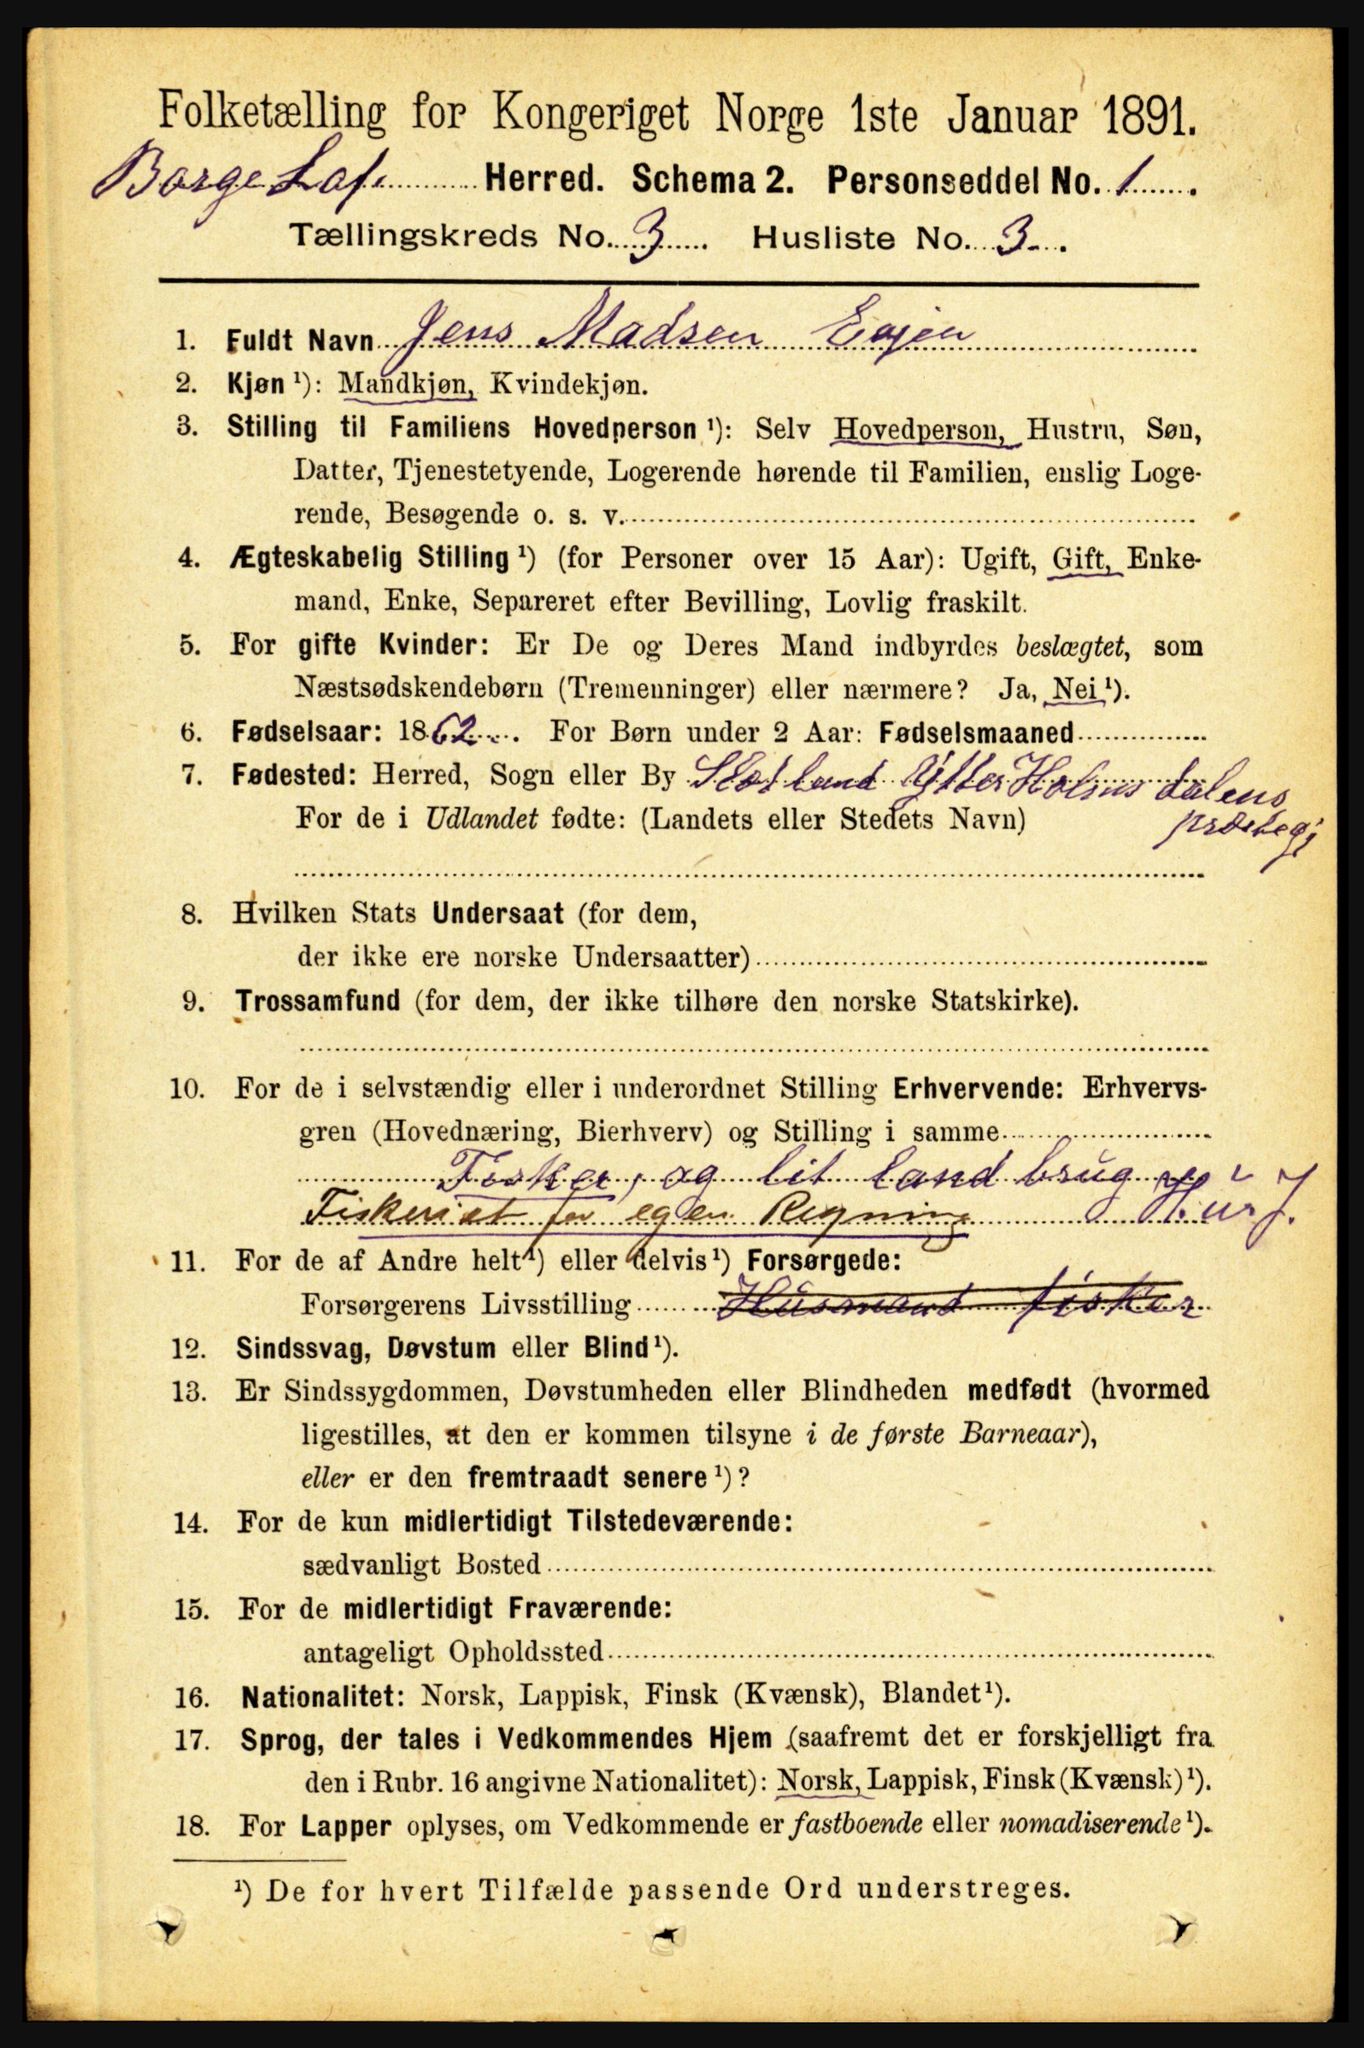 Folketælling for Kongeriget Norge 1ste Januar 1891.
Borge Lof. Herred. Schema 2. Personseddel No. 1.
Tællingskreds No. 3. Husliste No. 3.
1. Fuldt Navn Jens Madsen Evjen
2. Kjøn ¹): Mandkjøn, Kvindekjøn.
3. Stilling til Familiens Hovedperson ¹): Selv Hovedperson, Hustru, Søn,
Datter, Tjenestetyende, Logerende hørende til Familien, enslig Loge-
rende, Besøgende o. s. v.
4. Ægteskabelig Stilling ¹) (for Personer over 15 Aar): Ugift, Gift, Enke-
mand, Enke, Separeret efter Bevilling, Lovlig fraskilt.
5. For gifte Kvinder: Er De og Deres Mand indbyrdes beslægtet, som
Næstsødskendebørn (Tremenninger) eller nærmere? Ja, Nei ¹).
6. Fødselsaar: 1862. For Børn under 2 Aar: Fødselsmaaned
7. Fødested: Herred, Sogn eller By dalens
For de i Udlandet fødte: (Landets eller Stedets Navn) præstegj
8. Hvilken Stats Undersaat (for dem,
der ikke ere norske Undersaatter)
9. Trossamfund (for dem, der ikke tilhøre den norske Statskirke).
10. For de i selvstændig eller i underordnet Stilling Erhvervende: Erhvervs-
gren (Hovednæring, Bierhverv) og Stilling i samme
Fisker, og lit land brug
Fiskeriet for egen Regning
11. For de af Andre helt ¹) eller delvis ¹) Forsørgede:
Forsørgerens Livsstilling Husmand fisker
12. Sindssvag, Døvstum eller Blind ¹).
13. Er Sindssygdommen, Døvstumheden eller Blindheden medfødt (hvormed
ligestilles, at den er kommen tilsyne i de første Barneaar),
eller er den fremtraadt senere ¹)?
14. For de kun midlertidigt Tilstedeværende:
sædvanligt Bosted
15. For de midlertidigt Fraværende:
antageligt Opholdssted
16. Nationalitet: Norsk, Lappisk, Finsk (Kvænsk), Blandet ¹).
17. Sprog, der tales i Vedkommendes Hjem (saafremt det er forskjelligt fra
den i Rubr. 16 angivne Nationalitet): Norsk, Lappisk, Finsk (Kvænsk) ¹).
18. For Lapper oplyses, om Vedkommende er fastboende eller nomadiserende ¹).
¹) De for hvert Tilfælde passende Ord understreges.